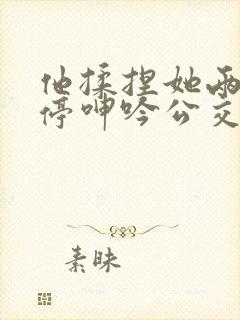 他揉捏她两
停呻吟公交
素昧